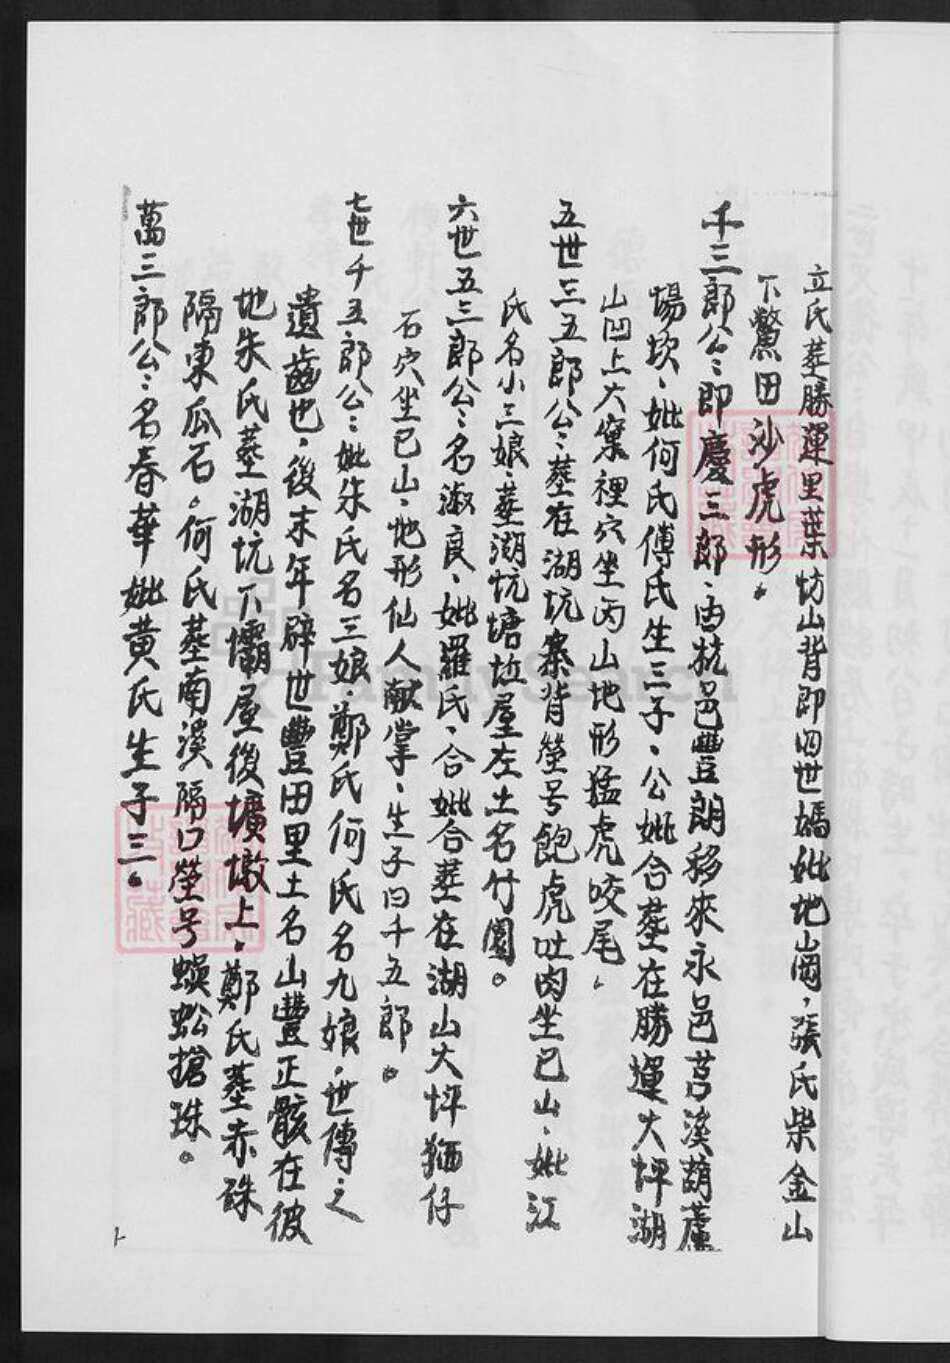 立氏葬勝運里葉坊山背即四世媽妣地崗，張氏柴金山
下鱉田沙虎形。
千三郎公：即慶三郎、由杭邑豐朗移來永邑莒溪葫蘆
場坎、妣何氏傅氏生三子、公妣合葬在勝運大坪湖
山凹上大窠裡穴坐丙山地形猛虎咬尾。
五世三五郎公：葬在湖坑寨背塋号飽虎吐肉坐巳山、妣江
氏名小三娘葬湖坑塘垃屋左土名竹園。
六世五三郎公：名淑良、妣羅氏、合妣合葬在湖山大坪猫仔
石穴坐巳山、地形仙人献掌、生子曰千五郎。
七世千五郎公：妣朱氏名三娘鄭氏何氏名九娘，世傳之
遺齒也，後末年辟世豐田里土名山豐正骸在彼
地朱氏葬湖坑下壩屋後壙墩上，鄭氏葬赤硃
隔東瓜石，何氏葬南溪隔口塋号蜈蚣搶珠。
萬三郎公：名春華妣黄氏生子三。
FamilySearch